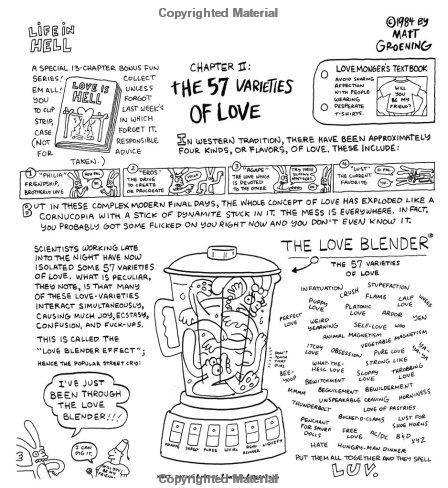 Copyrighted Material
LIFE IN
HELL
©1984 BY
MATT
GROENING
A SPECIAL 13-CHAPTER BONUS FUN
SERIES! COLLECT
'EM ALL! UNLESS
YOU FORGOT
TO CLIP LAST WEEK'S
STRIP, IN WHICH
CASE FORGET IT.
(NOT RESPONSIBLE
FOR ADVICE
TAKEN.)
LOVE IS
HELL
CHAPTER II:
THE 57 VARIETIES
OF LOVE
LOVEMONGER'S TEXTBOOK
AVOID SHARING
AFFECTION
WITH PEOPLE
WEARING
DESPERATE
T-SHIRTS.
WILL
YOU BE
MY FRIEND?
IN WESTERN TRADITION, THERE HAVE BEEN APPROXIMATELY
FOUR KINDS, OR FLAVORS, OF LOVE. THESE INCLUDE:
1 "PHILIA"
FRIENDSHIP,
BROTHERLY LOVE
2 "EROS"
THE DRIVE
TO CREATE
OR PROCREATE
3 "AGAPE"
THE LOVE WHICH
IS DEVOTED
TO THE OTHER
4 "LUST"
THE CURRENT
FAVORITE
BUT IN THESE COMPLEX MODERN FINAL DAYS, THE WHOLE CONCEPT OF LOVE HAS EXPLODED LIKE A
CORNUCOPIA WITH A STICK OF DYNAMITE STUCK IN IT. THE MESS IS EVERYWHERE. IN FACT,
YOU PROBABLY GOT SOME FLICKED ON YOU RIGHT NOW AND YOU DON'T EVEN KNOW IT.
SCIENTISTS WORKING LATE
INTO THE NIGHT HAVE NOW
ISOLATED SOME 57 VARIETIES
OF LOVE. WHAT IS PECULIAR,
THEY NOTE, IS THAT MANY
OF THESE LOVE-VARIETIES
INTERACT SIMULTANEOUSLY,
CAUSING MUCH JOY, ECSTASY,
CONFUSION, AND FUCK-UPS.
THIS IS CALLED THE
"LOVE BLENDER EFFECT";
HENCE THE POPULAR STREET CRY:
I'VE JUST
BEEN THROUGH
THE LOVE
BLENDER!!!
I CAN
DIG IT.
THE LOVE BLENDER®
THE 57 VARIETIES
OF LOVE
INFATUATION
CRUSH
STUPEFACTION
PUPPY
LOVE
FLAMS
CALF
LOVE
PLATONIC
LOVE
PERFECT
LOVE
WEIRD
YEARNING
ARDOR
YEN
SELF-LOVE
WOO
ANIMAL MAGNETISM
VEGETABLE MAGNETISM
ITCHY
LOVE
OBSESSION
PURE LOVE
WHAT-THE-
HELL LOVE
STRONG LIKE
SLOPPY
LOVE
THROBBING
LOVE
BEWITCHMENT
MMMM
BEGUILEMENT
BEWILDERMENT
UNSPEAKABLE CRAVING
HORNINESS
THUNDERBOLT
LOVE OF PASTRIES
PENCHANT
FOR SMURF
DOLLS
LUST FOR
SHOE HORNS
FREE
LOVE
AC/DC
HATE
HUNGRY-MAN DINNER
PUT THEM ALL TOGETHER AND THEY SPELL
LUV.
Copyrighted Material